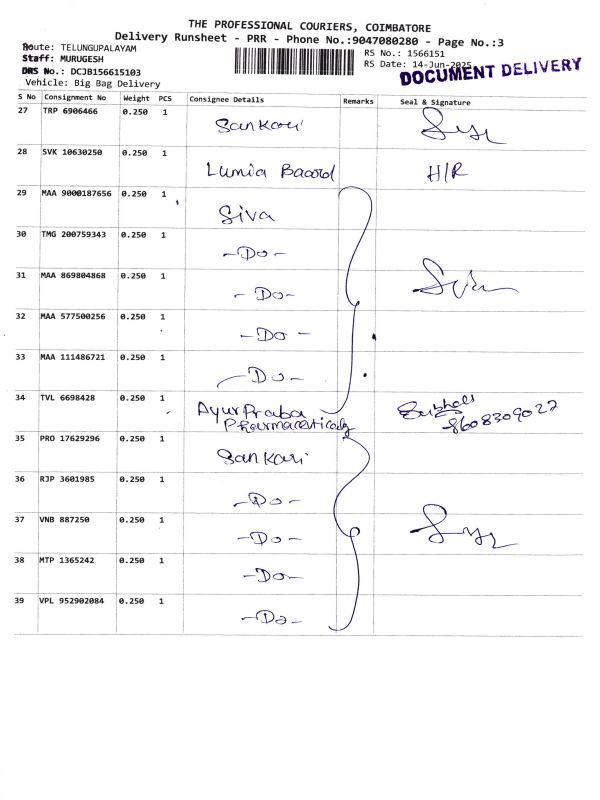 THE PROFESSIONAL COURIERS, COIMBATORE
Delivery Runsheet - PRR - Phone No.:9047080280 - Page No.:3
Route: TELUNGUPALAYAM
RS No.: 1566151
Staff: MURUGESH
RS Date: 14-Jun-2025
DOCUMENT DELIVERY
DRS No.: DCJB156615103
Vehicle: Big Bag Delivery
S No Consignment No Weight PCS Consignee Details Remarks Seal & Signature
27 TRP 6906466 0.250 1 Sankari
28 SVK 10630250 0.250 1 Lumia Baord H/R
29 MAA 9000187656 0.250 1 Siva
30 TMG 200759343 0.250 1 -Do-
31 MAA 869804868 0.250 1 -Do- Siva
32 MAA 577500256 0.250 1 -Do-
33 MAA 111486721 0.250 1 -Do-
34 TVL 6698428 0.250 1 AyurPraba
Pharmaceuticals 8608309022
35 PRO 17629296 0.250 1 Sankari
36 RJP 3601985 0.250 1 -Do-
37 VNB 887250 0.250 1 -Do-
38 MTP 1365242 0.250 1 -Do-
39 VPL 952902084 0.250 1 -Do-